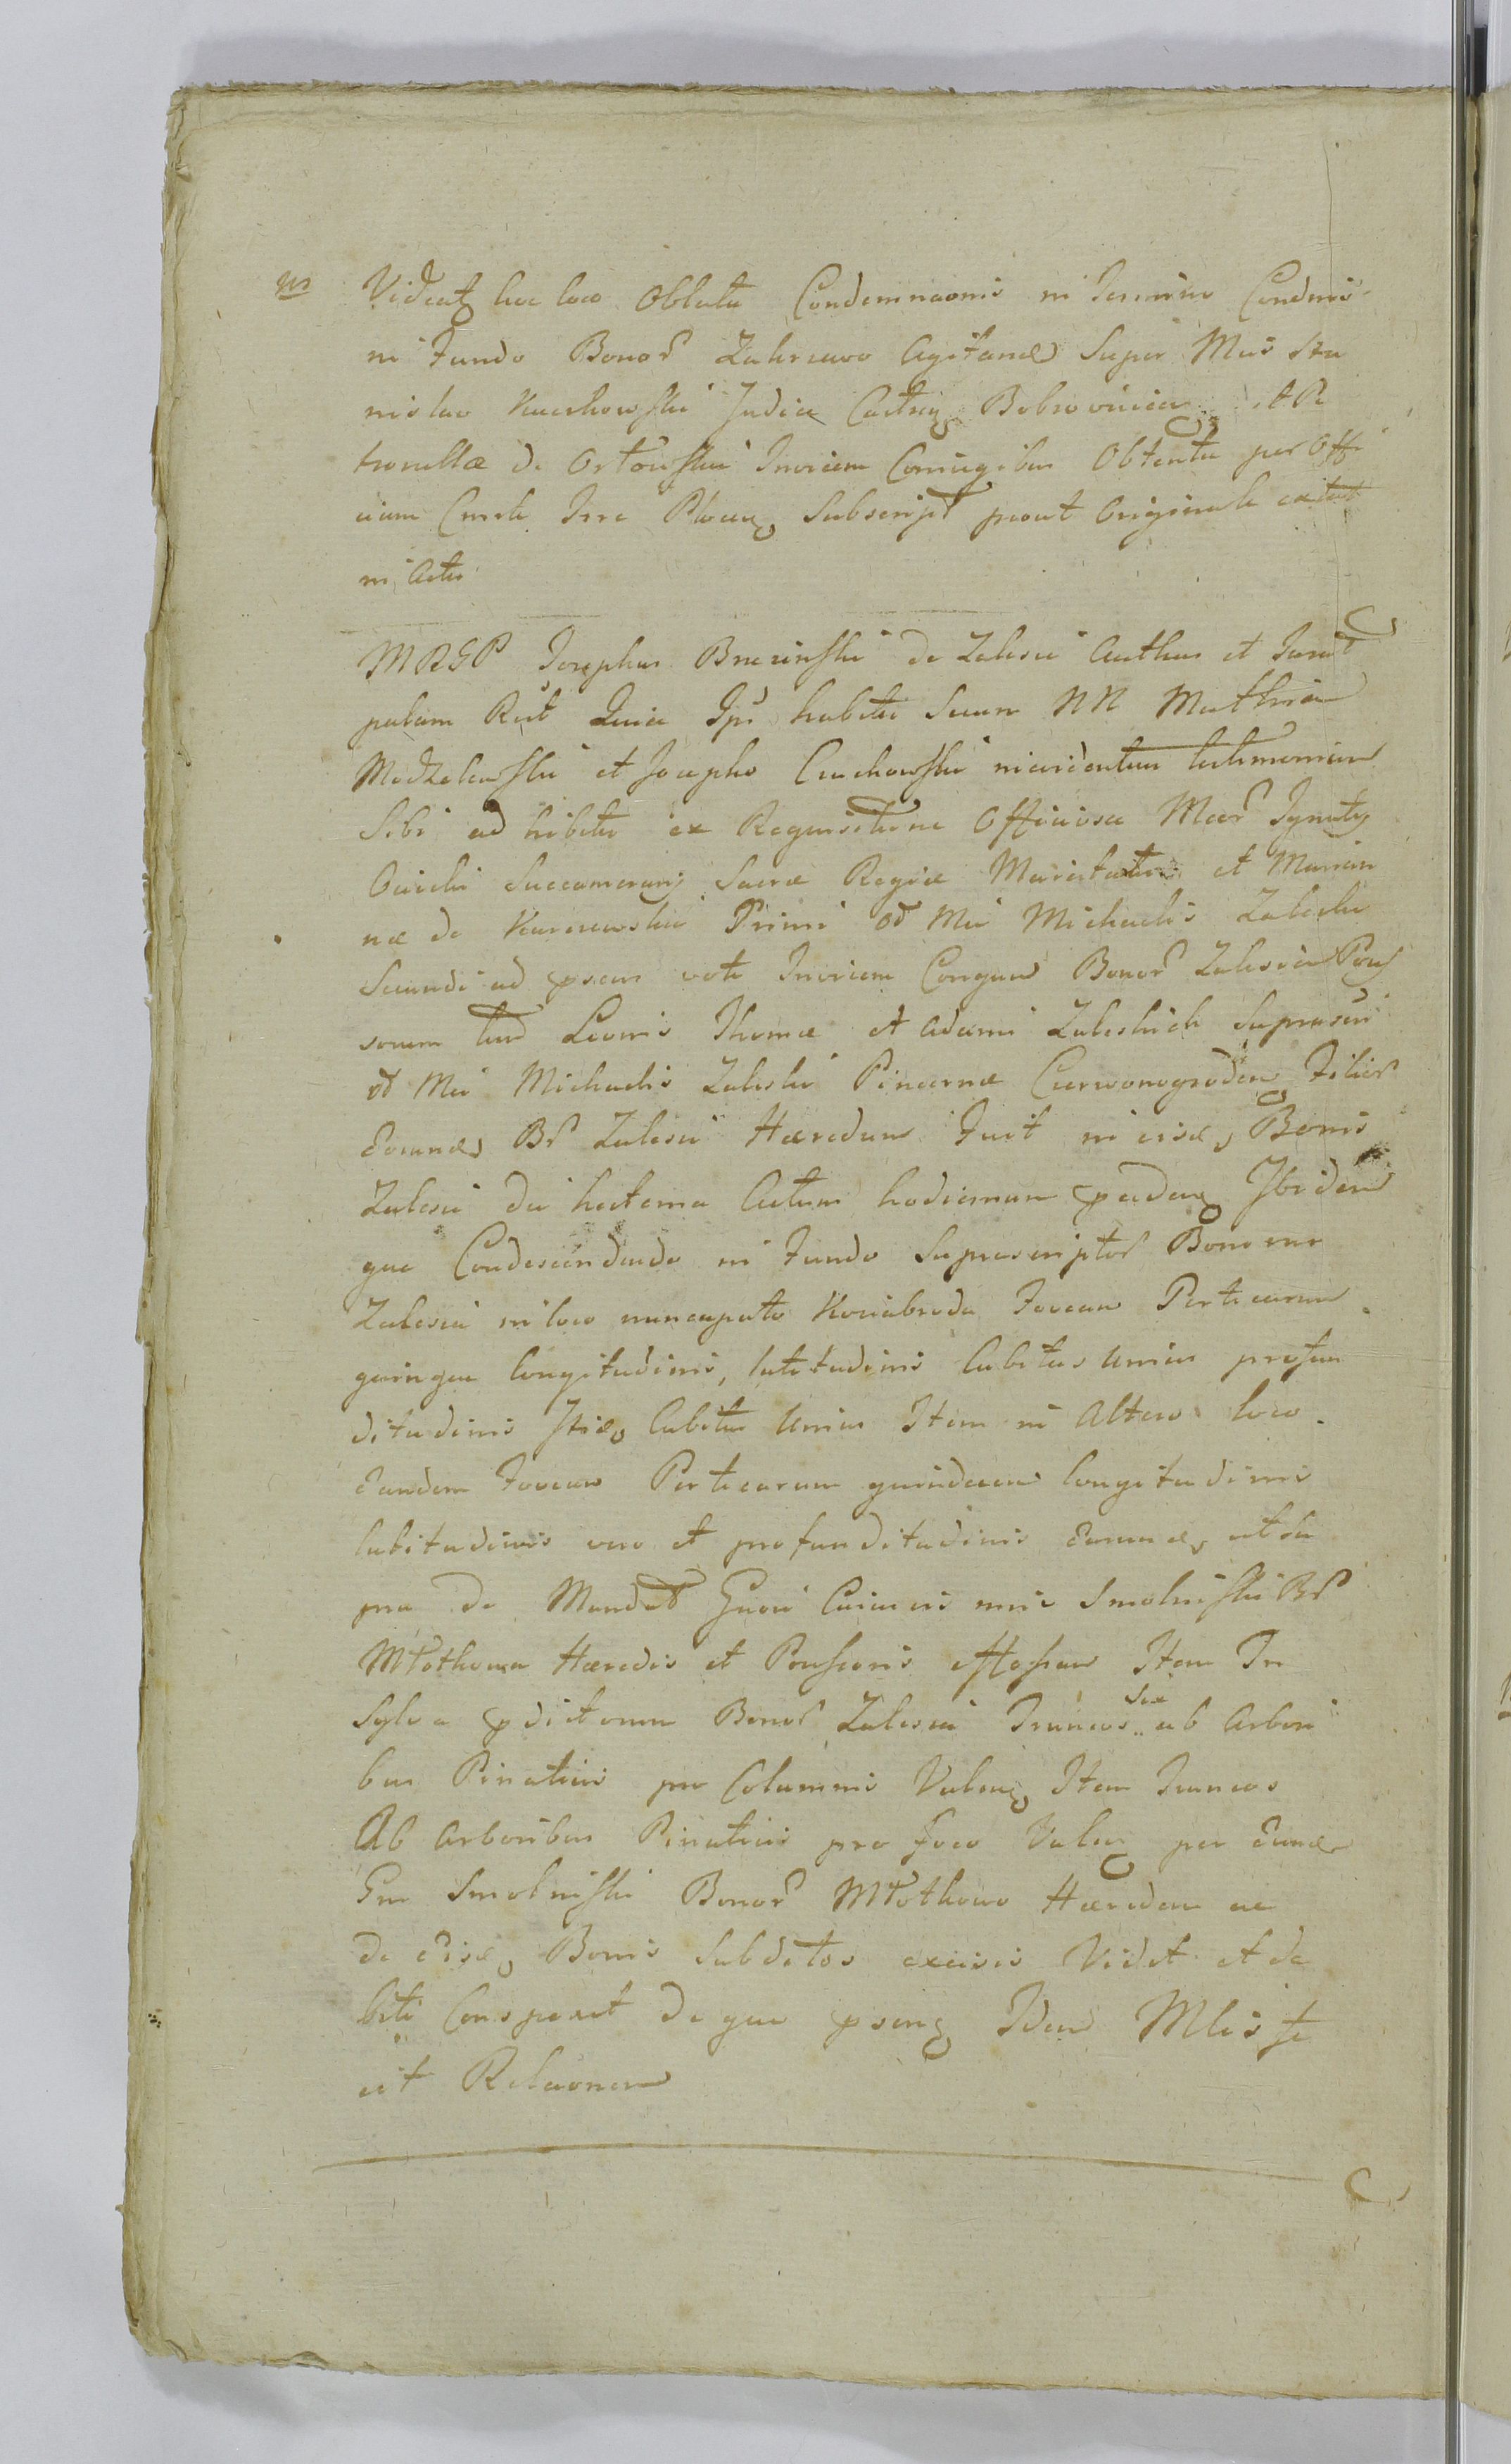 Videatz hic loco Oblata Condemnaonis in Termino Condnis
in Fundo Bonor Zakrzewo Agitand Super Mcis Sta
nislao Judice Castrz Bobrovnicen et Pe
tronella de Invicem Conjugibus Obtenta per Offi
cium Subscript prout Originale extat
in Actis
MRGP Josephus Brzezinski de Zalesie Authus et Jurat
palam Rct Quia Ipe habitis Secum NN Mathia
Modzelewski et Josepho Ciechowski in evidentius testimonium
Sibi adhibitis ex Requisitione Officiosa Mcor Ignatij
Succamerarij Sacræ Regiæ Maiestatis et Marian
næ de Primi od Mci Michaelis Zaleski
Secundi ad præns voti Invicem Conjgum Bonor Zalesie Poss
sorum tum Leonis Thomæ et Adami Zaleskich Suprascri
od Mci Michaelis Zaleski Pincernæ Czerwonogroden Filior
Eorund Br Zalesie Hæredum Fuit in eisd Bonis
Zalesie die hesterna Actum hodiernum præcedenz Ibidem
que Condescendendo in Fundo Suprascriptor Bonorum
Zalesie in loco nuncupato Koziabroda Foveam Perticarum
quinque longitudinis, latitudinis Cubitus Unius profun
ditudinis Itid Cubitus Unius Item in Altero loco
Eandem Foveam Perticarum quindecim longitudinis
latitudinis vero et profunditudinis Earund ut Su
pra de Mandat Gnosi Smolinski Br
Młotkowa Hæredis et Possessoris effossam Item In
Sylva prdictorum Bonor Zalesie Truncos Sex ab Arbori
bus Pinaticis pro Columnis Valenz Item Truncos
Ab Arboribus Pinatieis pro foco Valenz per Eund
Gm Smolinski Bonor Młotkowo Hæredem ac
de Eisd Bonis Subditos excisis Vidit et de
bite Conspexit de quo præsenz Idem Mlis fe
cit Relaonem